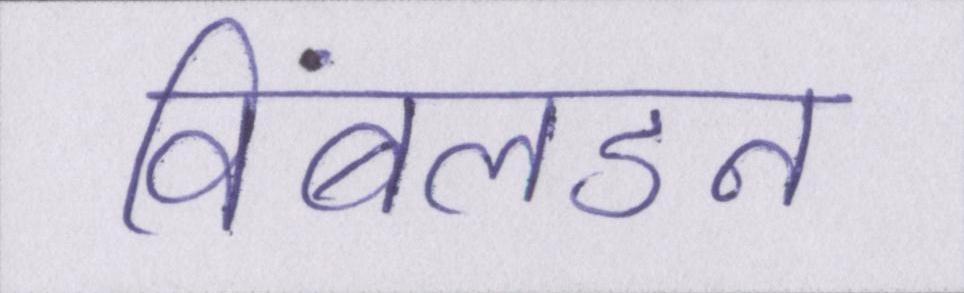 विंबलडन